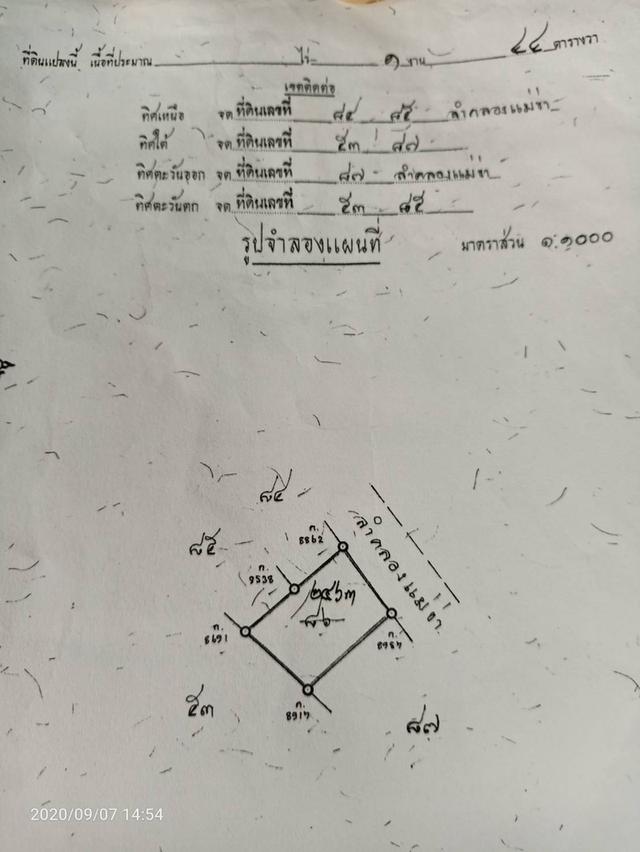 ที่ดินแปลงนี้ เนื้อที่ประมาณ ไร่ ๑ งาน ๔๔ ตารางวา
เขตติดต่อ
ทิศเหนือ จด ที่ดินเลขที่ ๘๔ ๘๕ ลำคลองแม่ข่า
ทิศใต้ จด ที่ดินเลขที่ ๕๓ ๘๗
ทิศตะวันออก จด ที่ดินเลขที่ ๘๗ ลำคลองแม่ข่า
ทิศตะวันตก จด ที่ดินเลขที่ ๕๓ ๘๕
รูปจำลองแผนที่ มาตราส่วน ๑:๑๐๐๐
๘๔
๘๕
ลำคลองแม่ข่า
๒๔๖๓
๘๖
๕๓
๘๗
2020/09/07 14:54